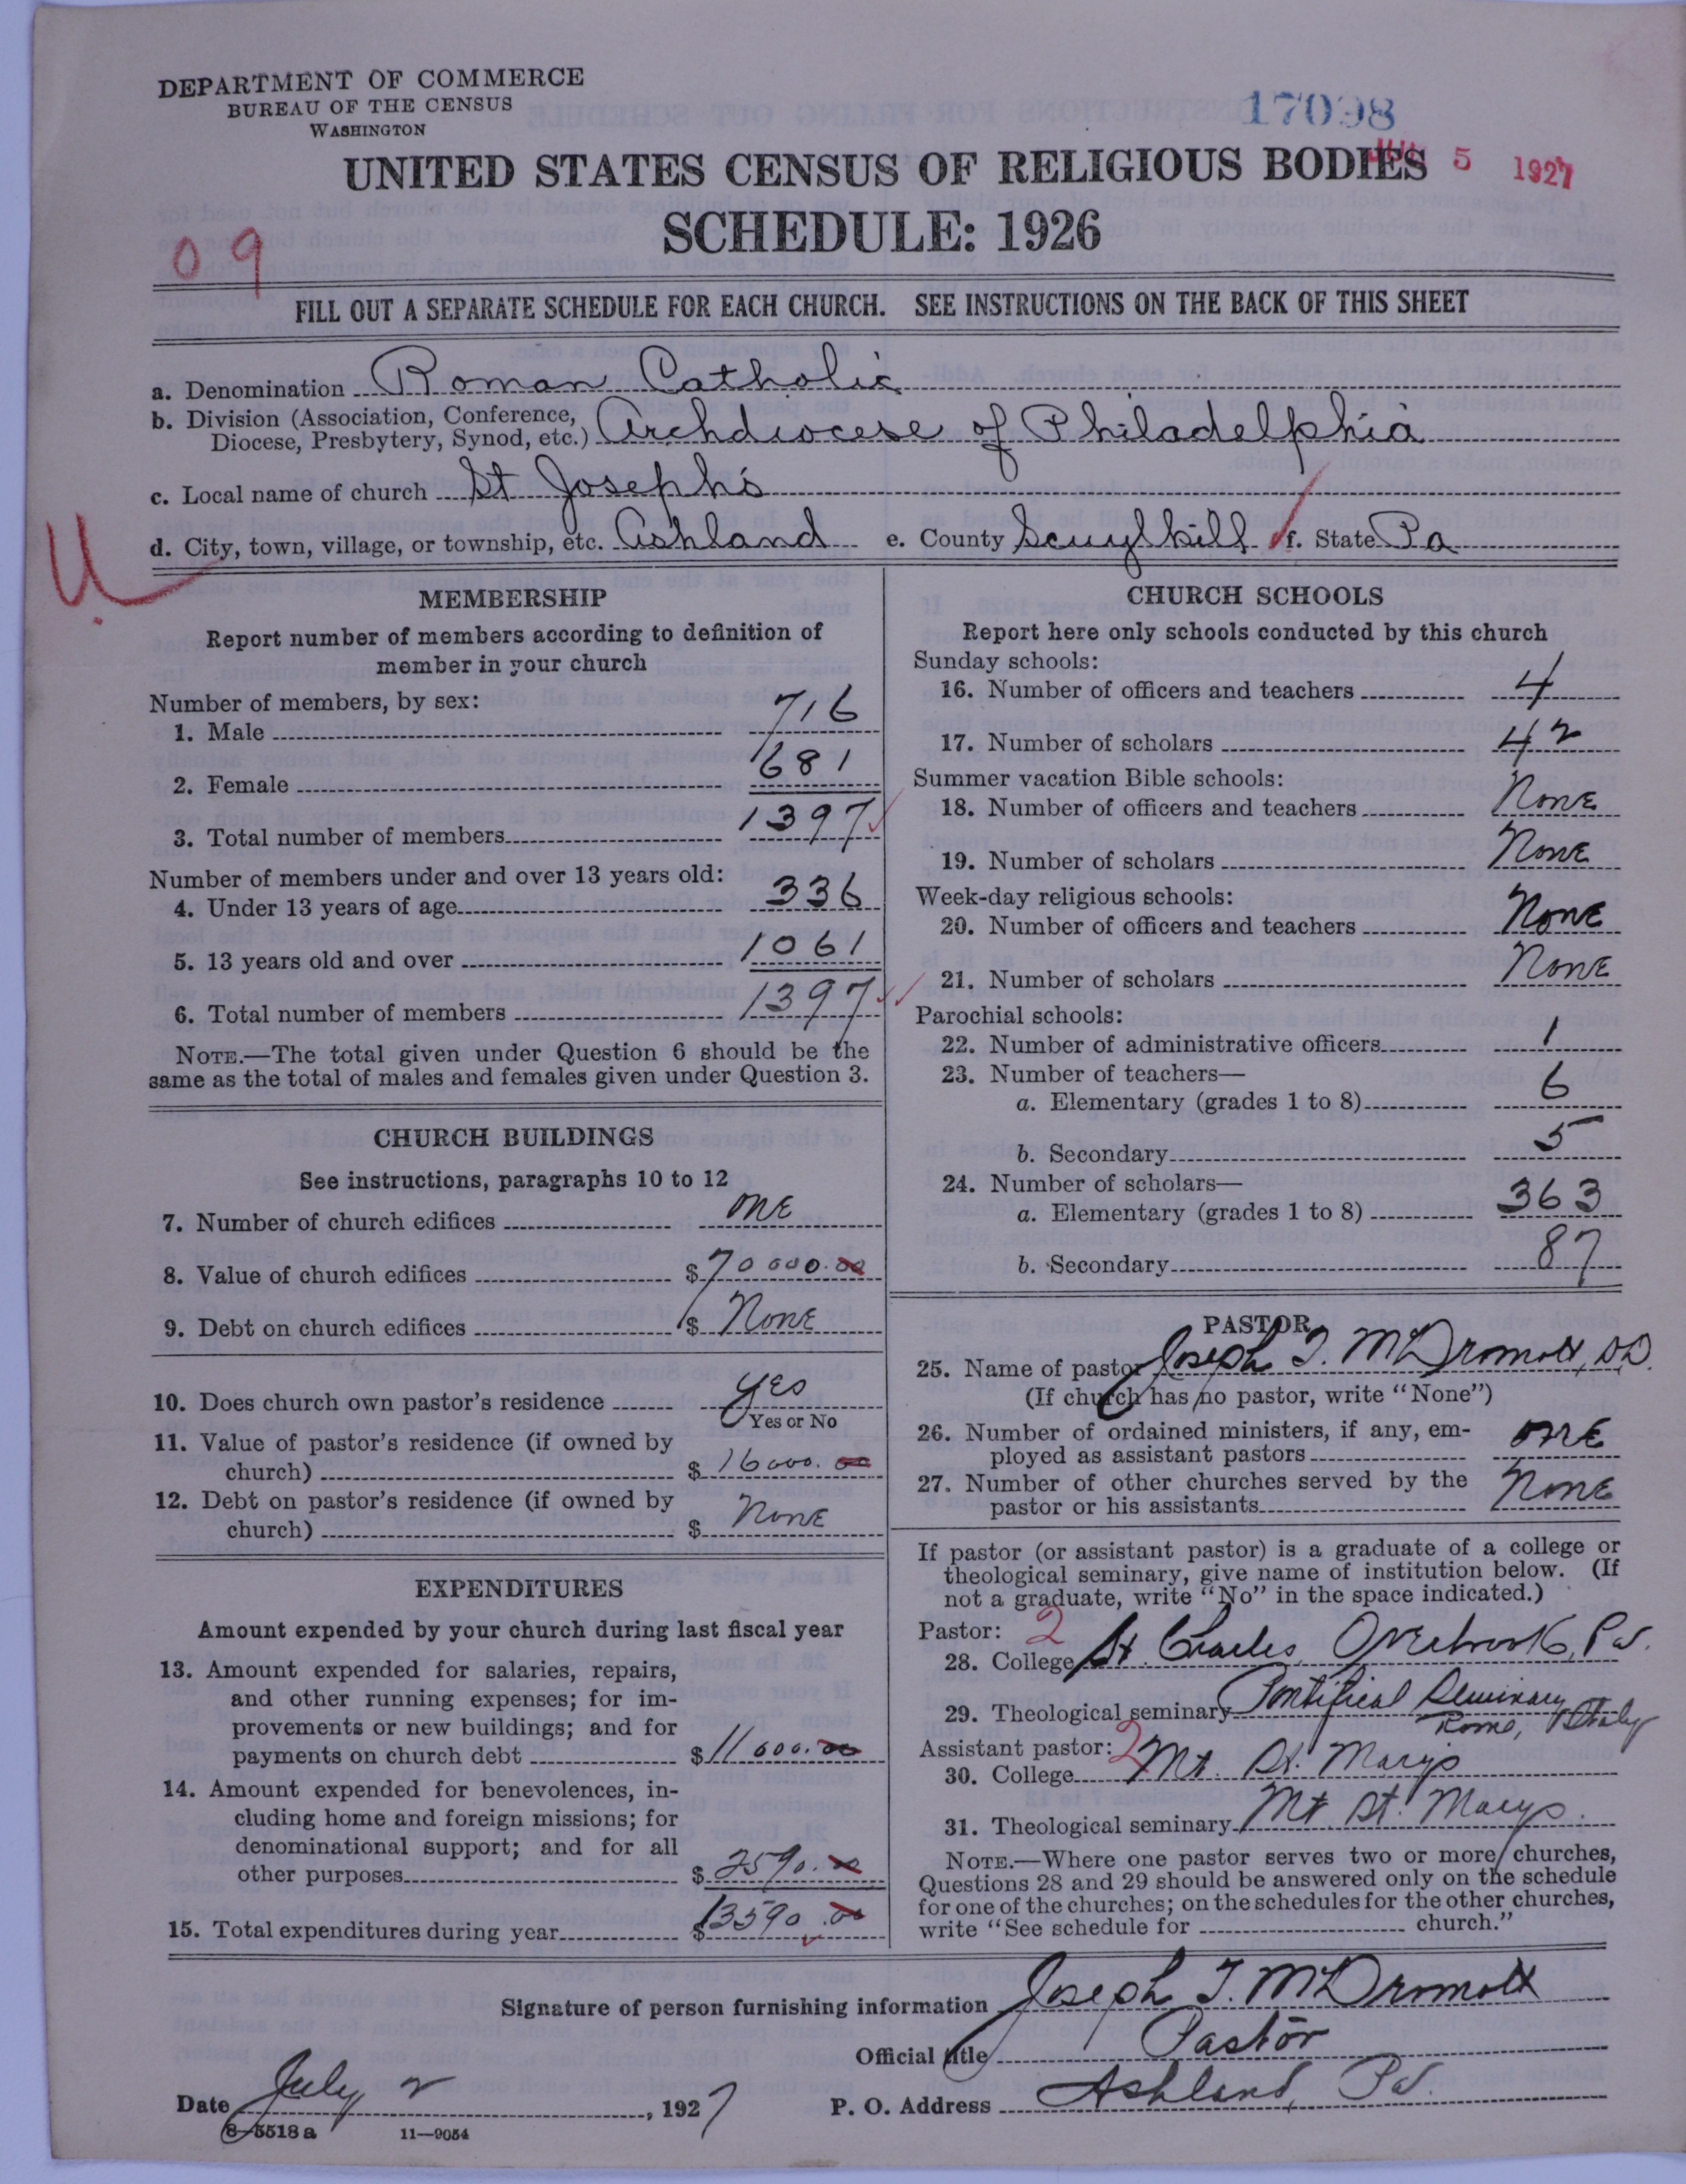 DEPARTMENT OF COMMERCE
BUREAU OF THE CENSUS
WASHINGTON
17098
UNITED STATES CENSUS OF RELIGIOUS BODIES
5 1927
SCHEDULE: 1926
09
FILL OUT A SEPARATE SCHEDULE FOR EACH CHURCH. SEE INSTRUCTIONS ON THE BACK OF THIS SHEET
a. Denomination Roman Catholic
b. Division (Association, Conference, Diocese, Presbytery, Synod, etc.) Archdiocese of Philadelphia
c. Local name of church St Joseph's
d. City, town, village, or township, etc. Ashland e. County Scuylkill f. State Pa
U
MEMBERSHIP
Report number of members according to definition of
member in your church
Number of members, by sex:
1. Male 716
2. Female 681
3. Total number of members 1397
Number of members under and over 13 years old:
4. Under 13 years of age 336
5. 13 years old and over 1061
6. Total number of members 1397
NOTE.—The total given under Question 6 should be the
same as the total of males and females given under Question 3.
CHURCH BUILDINGS
See instructions, paragraphs 10 to 12
7. Number of church edifices one
8. Value of church edifices $ 70000.00
9. Debt on church edifices $ None
10. Does church own pastor's residence yes
Yes or No
11. Value of pastor's residence (if owned by
church) $ 16000.00
12. Debt on pastor's residence (if owned by
church) $ None
EXPENDITURES
Amount expended by your church during last fiscal year
13. Amount expended for salaries, repairs,
and other running expenses; for im-
provements or new buildings; and for
payments on church debt $ 11000.00
14. Amount expended for benevolences, in-
cluding home and foreign missions; for
denominational support; and for all
other purposes $ 2590.00
15. Total expenditures during year $ 13590.00
CHURCH SCHOOLS
Report here only schools conducted by this church
Sunday schools:
16. Number of officers and teachers 4
17. Number of scholars 42
Summer vacation Bible schools:
18. Number of officers and teachers None
19. Number of scholars None
Week-day religious schools:
20. Number of officers and teachers None
21. Number of scholars None
Parochial schools:
22. Number of administrative officers 1
23. Number of teachers—
a. Elementary (grades 1 to 8) 6
b. Secondary 5
24. Number of scholars—
a. Elementary (grades 1 to 8) 363
b. Secondary 87
PASTOR
25. Name of pastor Joseph T. McDromott, D.D.
(If church has no pastor, write "None")
26. Number of ordained ministers, if any, em-
ployed as assistant pastors one
27. Number of other churches served by the
pastor or his assistants None
If pastor (or assistant pastor) is a graduate of a college or
theological seminary, give name of institution below. (If
not a graduate, write "No" in the space indicated.)
Pastor: 2
28. College St. Charles, Overbrook, Pa.
29. Theological seminary Pontifical Seminary
Rome, Italy
Assistant pastor: 2
30. College Mt. St. Mary's
31. Theological seminary Mt St. Marys.
NOTE.—Where one pastor serves two or more churches,
Questions 28 and 29 should be answered only on the schedule
for one of the churches; on the schedules for the other churches,
write "See schedule for church."
Signature of person furnishing information Joseph T. McDromott
Official title Pastor
Date July 2, 1927 P. O. Address Ashland, Pa.
8—5518a 11—9054